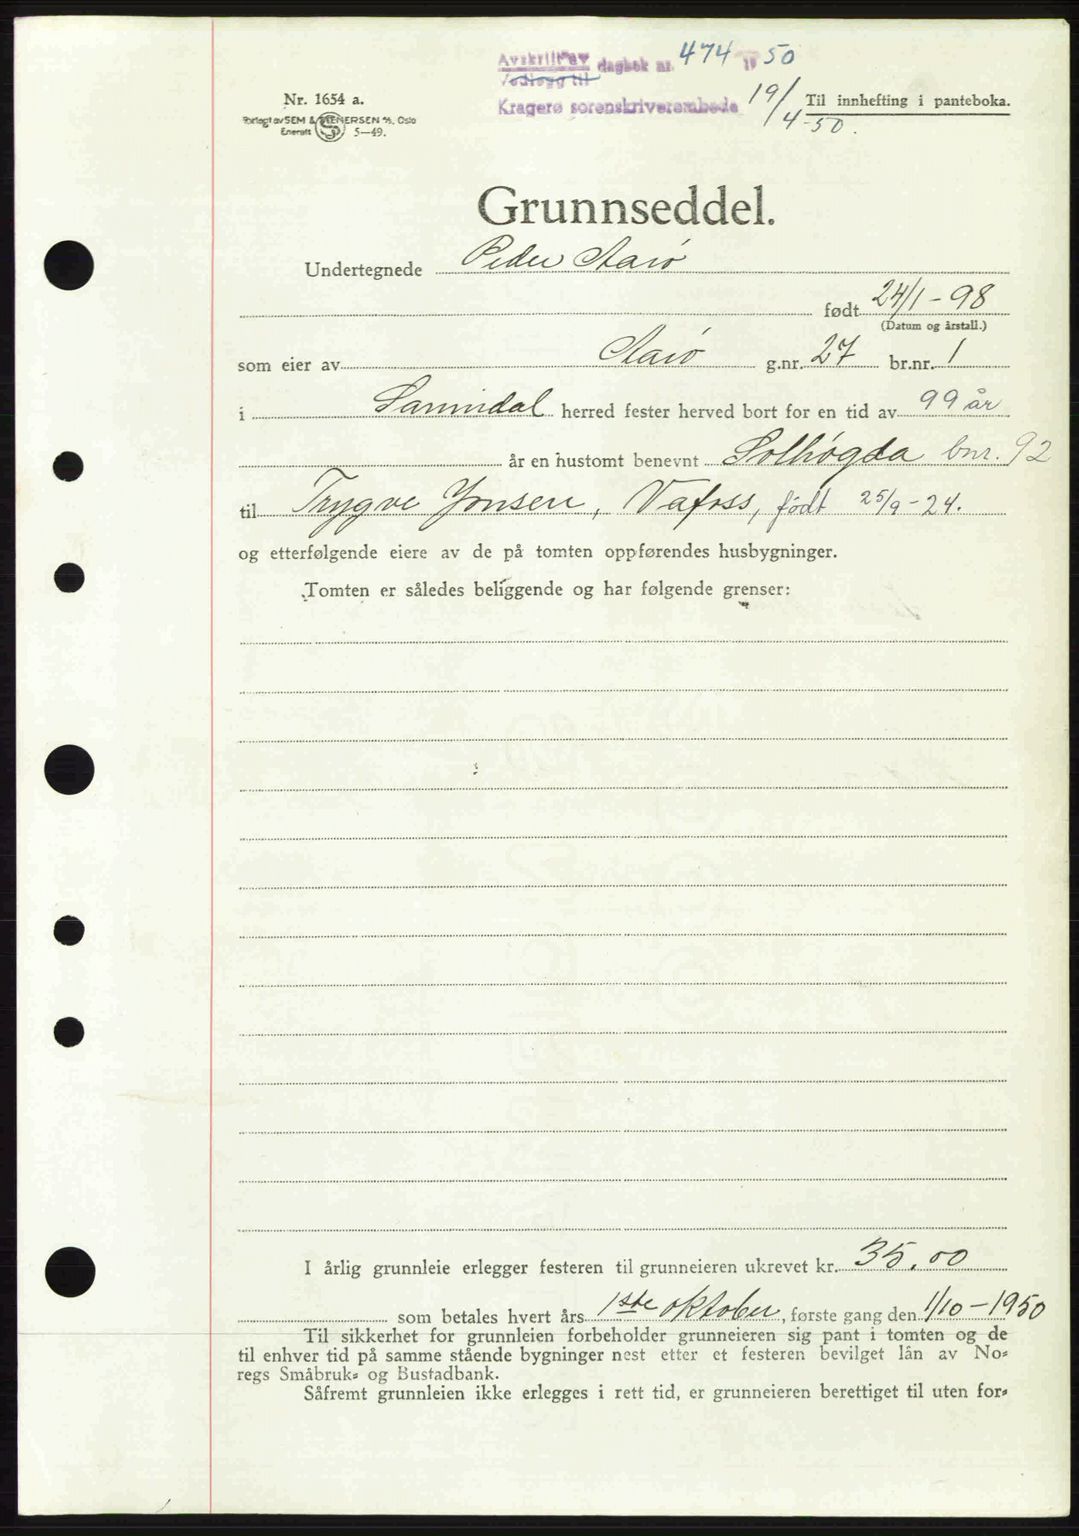 Avskrift av dagbok nr. 474 1950
Vedlegg til
Kragerø sorenskriverembede 19/4-50.
Til innhefting i panteboka.
Nr. 1654 a.
Forlagt av SEM & STENERSEN A/S, Oslo
Enerett S 5—49.
Grunnseddel.
Undertegnede Peder Aarø
født 24/1-98
(Datum og årstall.)
som eier av Aarø g.nr. 27 br.nr. 1
i Sannidal herred fester herved bort for en tid av 99 år
år en hustomt benevnt Solhøgda bnr. 92
til Trygve Jonsen, Vafoss, født 25/9-24.
og etterfølgende eiere av de på tomten oppførendes husbygninger.
Tomten er således beliggende og har følgende grenser:
I årlig grunnleie erlegger festeren til grunneieren ukrevet kr. 35,00
som betales hvert års 1ste oktober, første gang den 1/10-1950
Til sikkerhet for grunnleien forbeholder grunneieren sig pant i tomten og de
til enhver tid på samme stående bygninger nest etter et festeren bevilget lån av No-
regs Småbruk- og Bustadbank.
Såfremt grunnleien ikke erlegges i rett tid, er grunneieren berettiget til uten for-